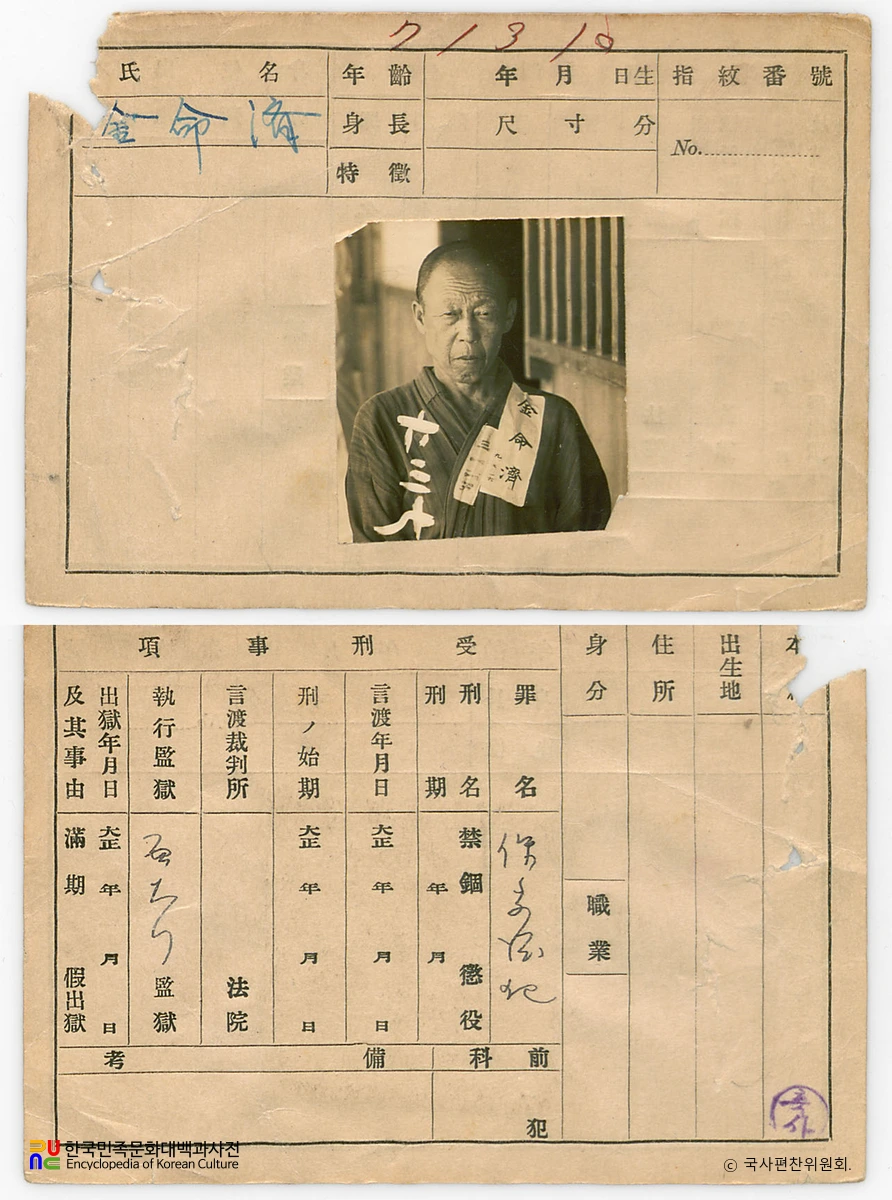 7 1 3 10
氏名
金命済
年齡
年月日生
指紋番號
身長
尺寸分
No.
特徵
金命濟
六三七
本
出生地
住所
身分
職業
受刑事項
罪名
保安法犯
刑名
禁錮 懲役
刑期
年 月
言渡年月日
大正 年 月 日
刑ノ始期
大正 年 月 日
言渡裁判所
法院
執行監獄
監獄
出獄年月日
及其事由
大正 年 月 日
滿期 假出獄
前科
犯
備考
한국민족문화대백과사전
Encyclopedia of Korean Culture
© 국사편찬위원회.